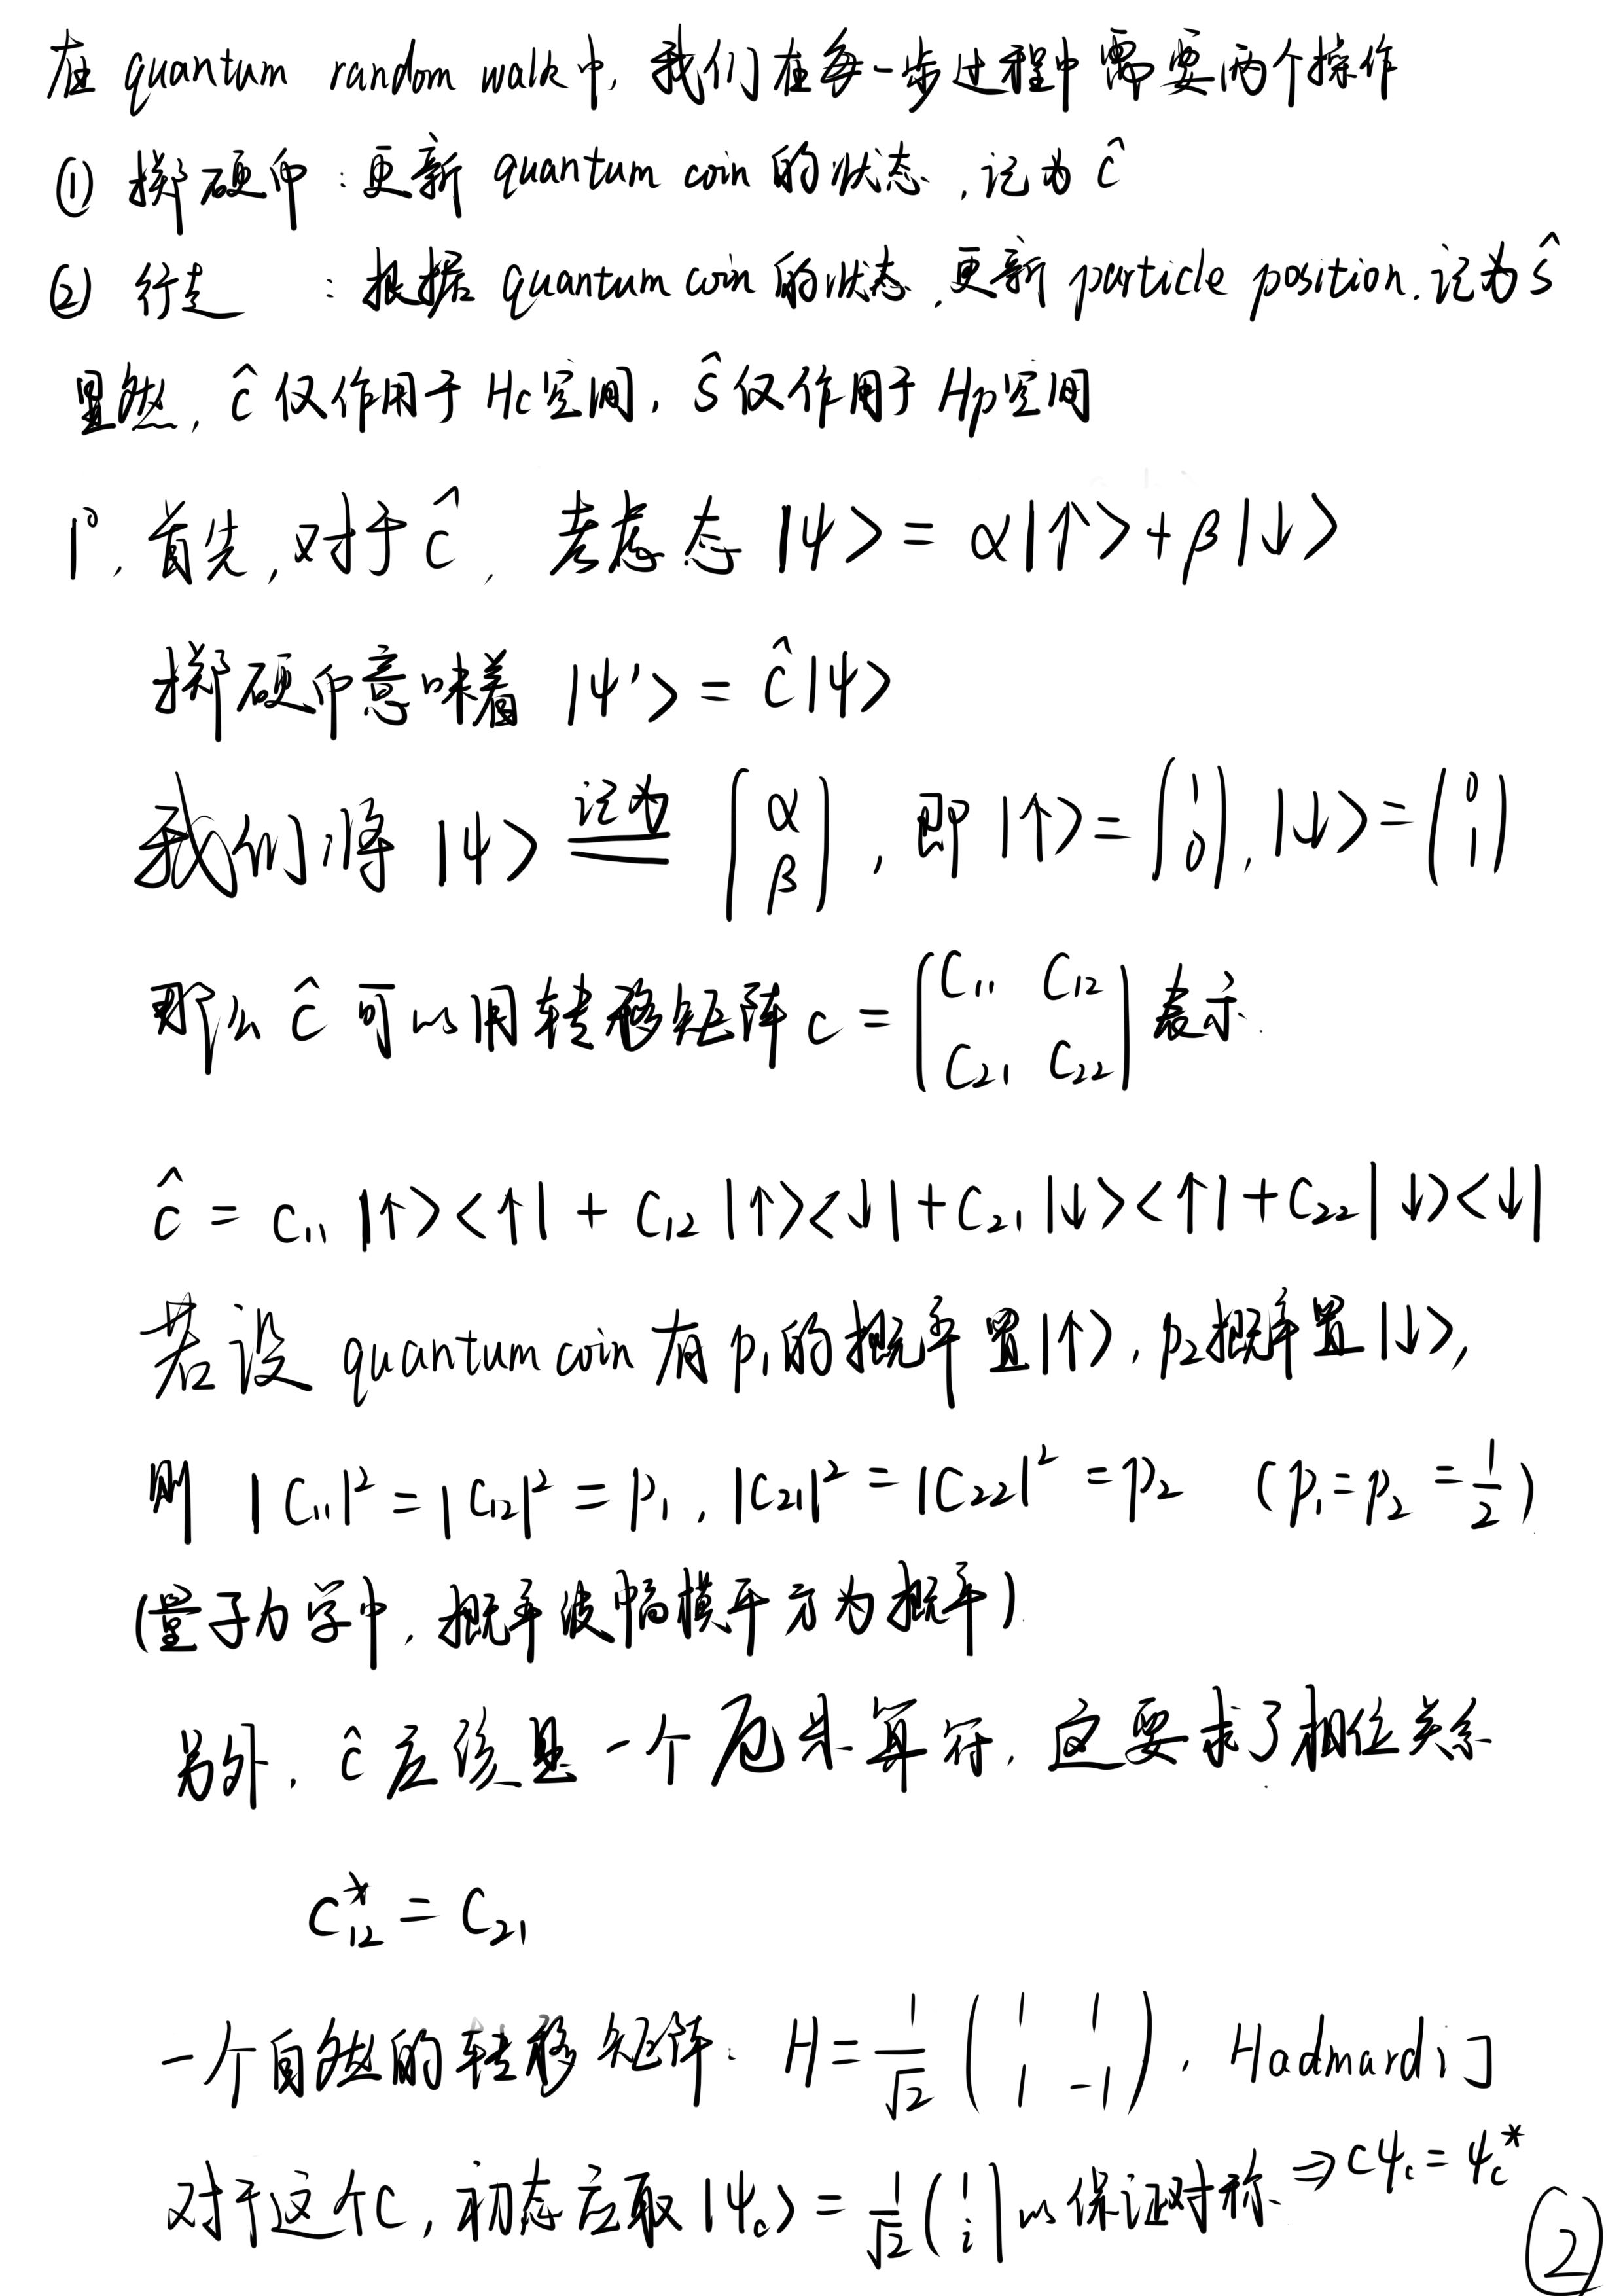 在 quantum random walk中, 我们在每一步过程中需要两个操作
① 掷硬币 : 更新 quantum coin 的状态, 记为 ĉ
② 行走 : 根据 quantum coin 的状态, 更新 particle position, 记为 ŝ
显然, ĉ 仅作用于 Hc空间, ŝ 仅作用于 Hp空间
1°. 首先, 对于 ĉ, 考虑态 |ψ> = α|↑> + β|↓>
掷硬币意味着 |ψ'> = ĉ|ψ>
我们将 |ψ> 记为 (α β), 即 |↑> = (1 0), |↓> = (0 1)
那么 ĉ 可以用转移矩阵 c = (C₁₁ C₁₂ C₂₁ C₂₂) 表示.
ĉ = c₁₁ |↑><↑| + c₁₂ |↑><↓| + c₂₁ |↓><↑| + c₂₂ |↓><↓|
若设 quantum coin 有 p₁的概率置|↑>, p₂概率置|↓>,
则 |c₁₁|² = |c₁₂|² = p₁, |c₂₁|² = |c₂₂|² = p₂ (p₁ = p₂ = 1/2)
(量子力学中, 概率波幅模平方为概率)
另外, ĉ 应该是一个厄米算符, 这要求了相位关系
c₁₂* = c₂₁
一个自然的转移矩阵: H = 1/√2 (1 1 1 -1), Hadmard门
对于这个C, 初态应取 |ψc> = 1/√2 (1 i) 以保证对称. ⇒ cψc = ψc*
②